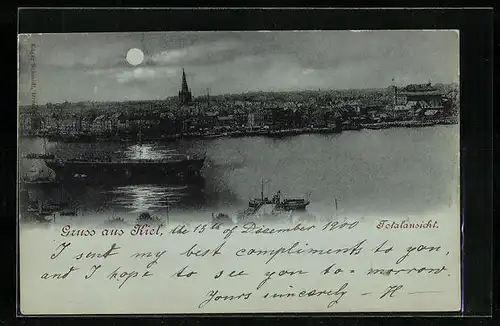 Gruss aus Kiel, the 15th of December 1900 Totalansicht.
I send my best compliments to you,
and I hope to see you to-morrow.
Yours sincerely - H -